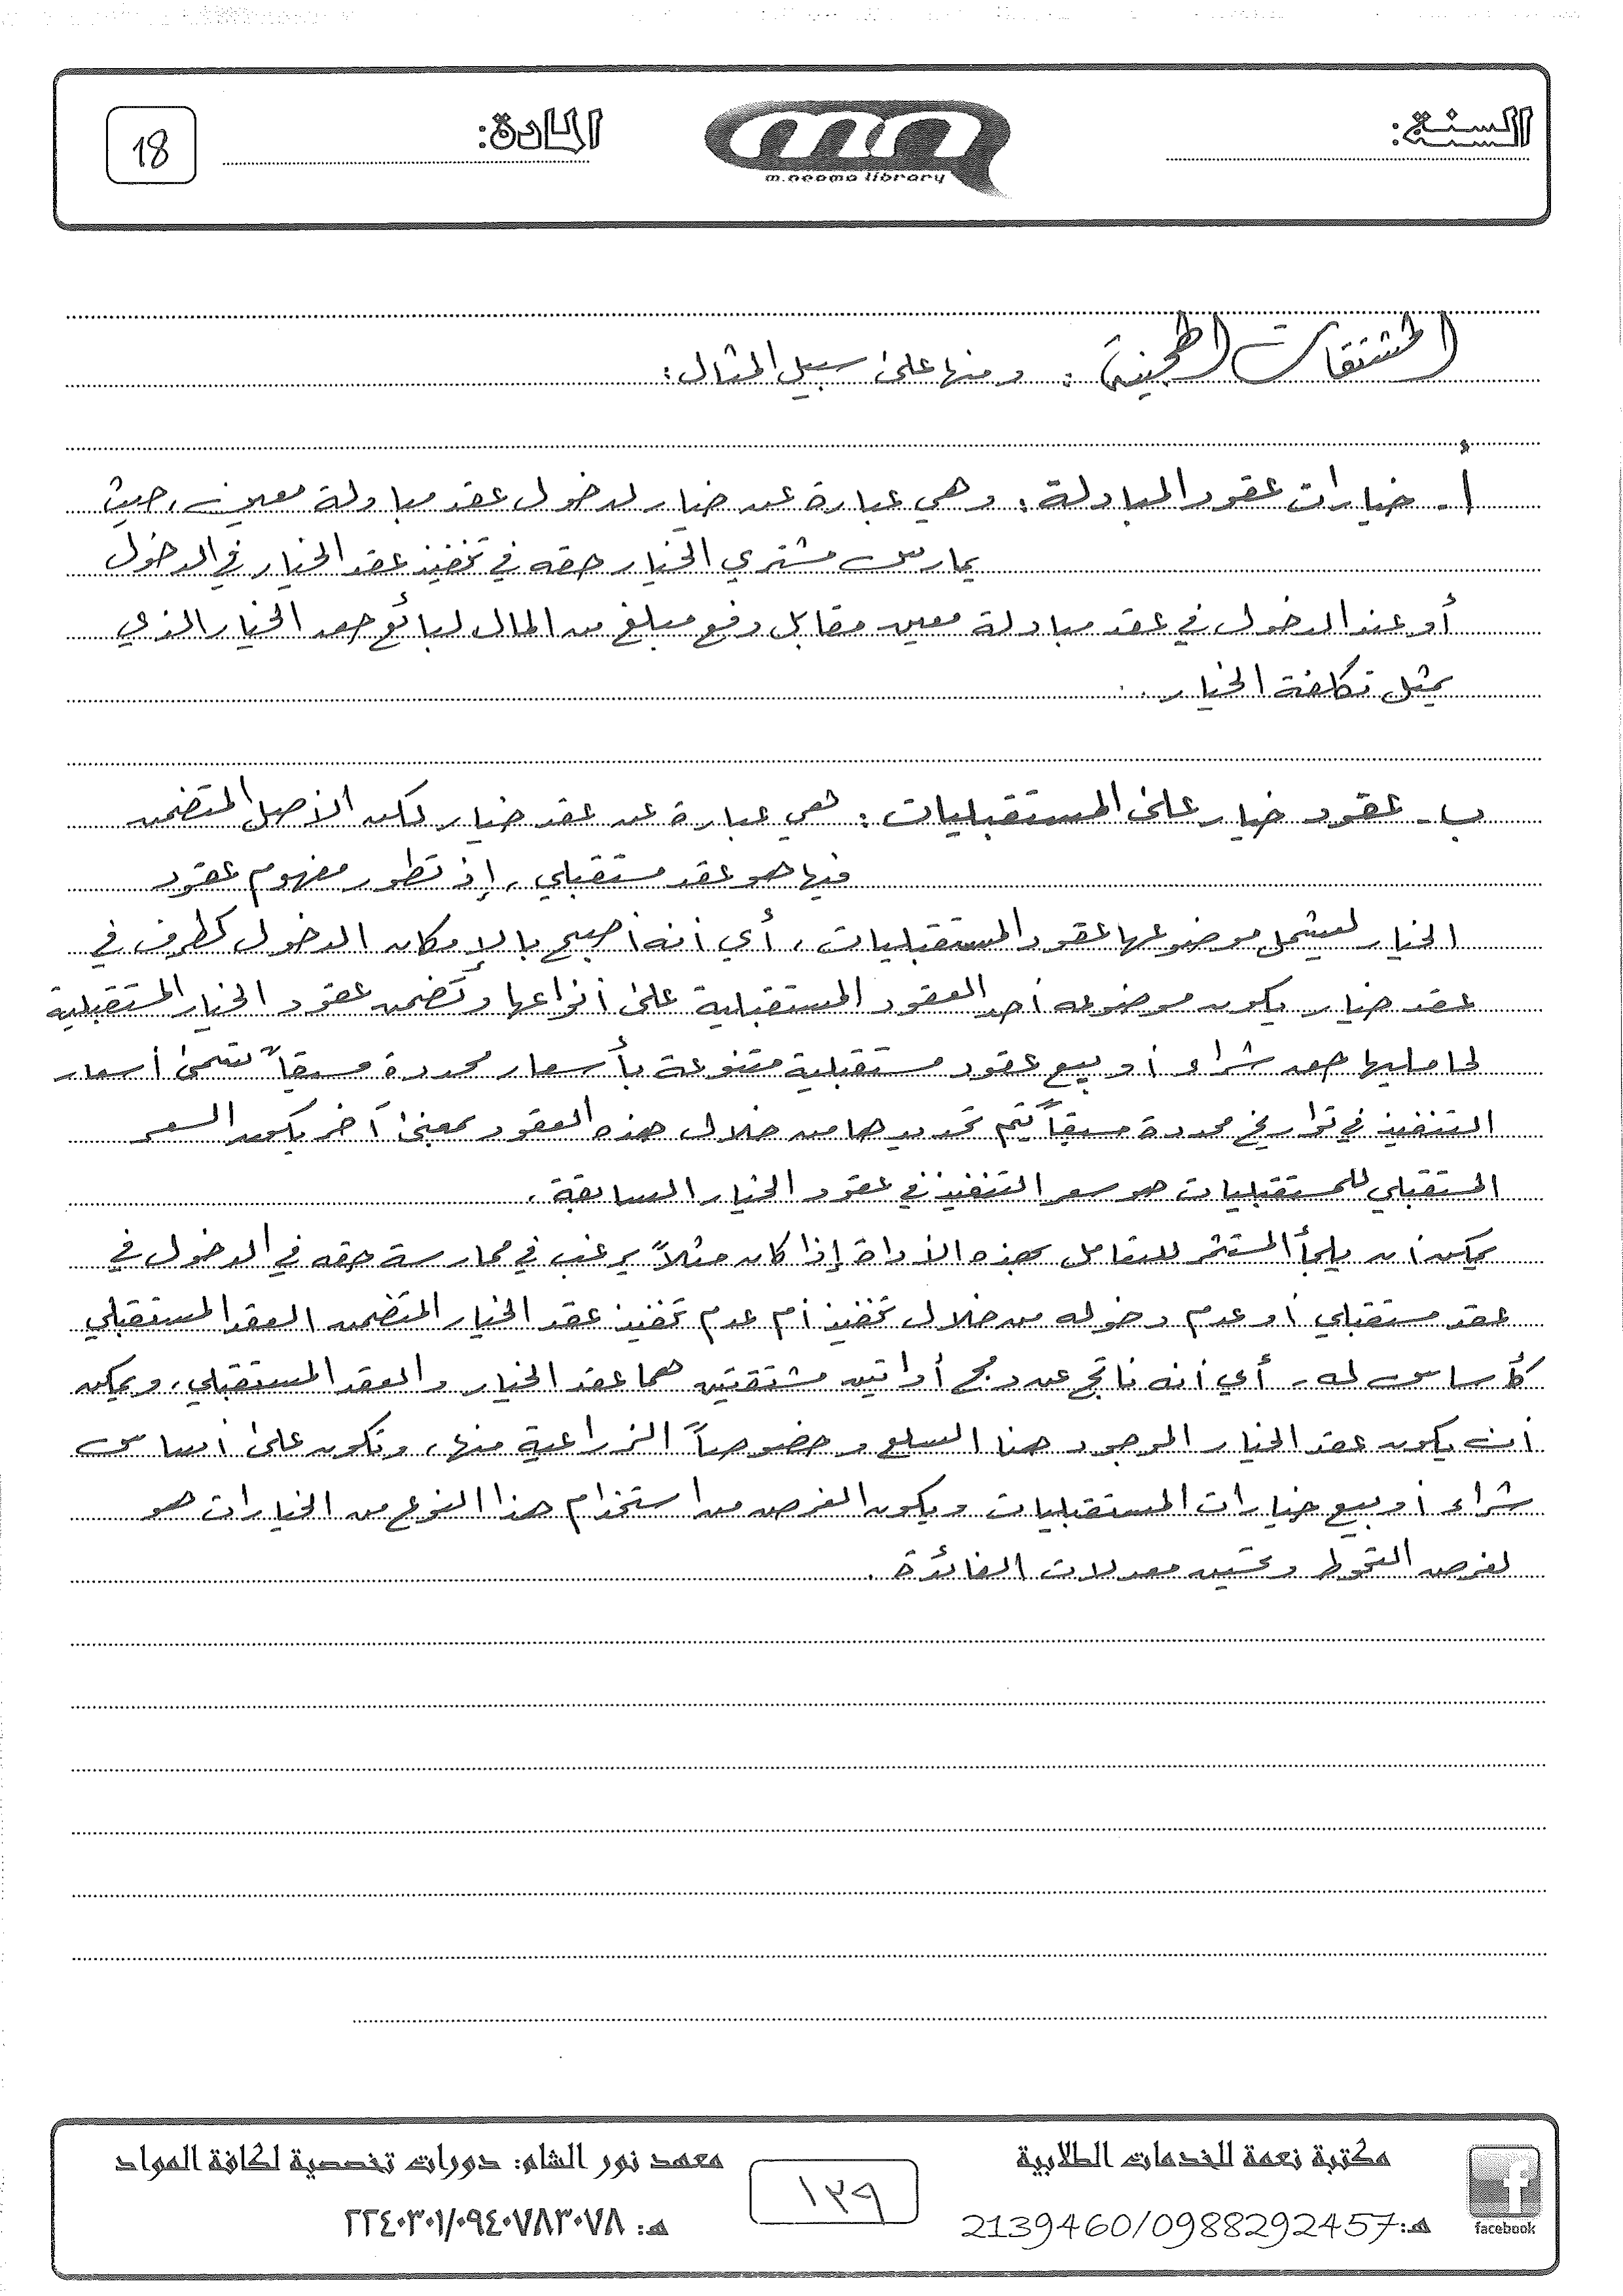 السنة:
m.neama library
المادة:
18
المشتقات الهجينة : ومنها على سبيل المثال :
أ - خيارات عقود المبادلة : وهي عبارة عن خيار لدخول عقد مبادلة معين ، حيث
يمارس مشتري الخيار حقه في تنفيذ عقد الخيار في الدخول
أو عند الدخول في عقد مبادلة معين مقابل دفع مبلغ من المال لبائع حق الخيار الذي
يمثل تكلفة الخيار ..
ب - عقود خيار على المستقبليات : هي عبارة عن عقد خيار لكن الأصل المتضمن
فيها هو عقد مستقبلي ، إذ تطور مفهوم عقود
الخيار ليشمل موضوعها عقود المستقبليات ، أي أنه أصبح بالإمكان الدخول كطرف في
عقد خيار يكون موضوعه أحد العقود المستقبلية على أنواعها وتضمن عقود الخيار المستقبلية
لحامليها حق شراء أو بيع عقود مستقبلية متنوعة بأسعار محددة مسبقاً تسمى أسعار
التنفيذ في تواريخ محددة مسبقاً يتم تحديدها من خلال هذه العقود بمعنى آخر يكون السعر
المستقبلي للمستقبليات هو سعر التنفيذ في عقود الخيار السابقة .
يمكن أن يلجأ المستثمر للتعامل بهذه الأداة إذا كان مثلاً يرغب في ممارسة حقه في الدخول في
عقد مستقبلي أو عدم دخوله من خلال تنفيذ أم عدم تنفيذ عقد الخيار المتضمن العقد المستقبلي
كأساس له ، أي أنه ناتج عن دمج أداتين مشتقتين هما عقد الخيار والعقد المستقبلي ، ويمكن
أن يكون عقد الخيار الموجود هنا السلع وخصوصاً الزراعية منها ، وتكون على أساس
شراء أو بيع خيارات المستقبليات ويكون الغرض من استخدام هذا النوع من الخيارات هو
لغرض التحوط وتحسين معدلات الفائدة .
مكتبة نعمة للخدمات الطلابية
هـ: 2139460/0988292457
facebook
١٣٩
معهد نور الشام: دورات تخصصية لكافة المواد
هـ: ٢٢٤٠٣٠١/٠٩٤٠٧٨٣٠٧٨